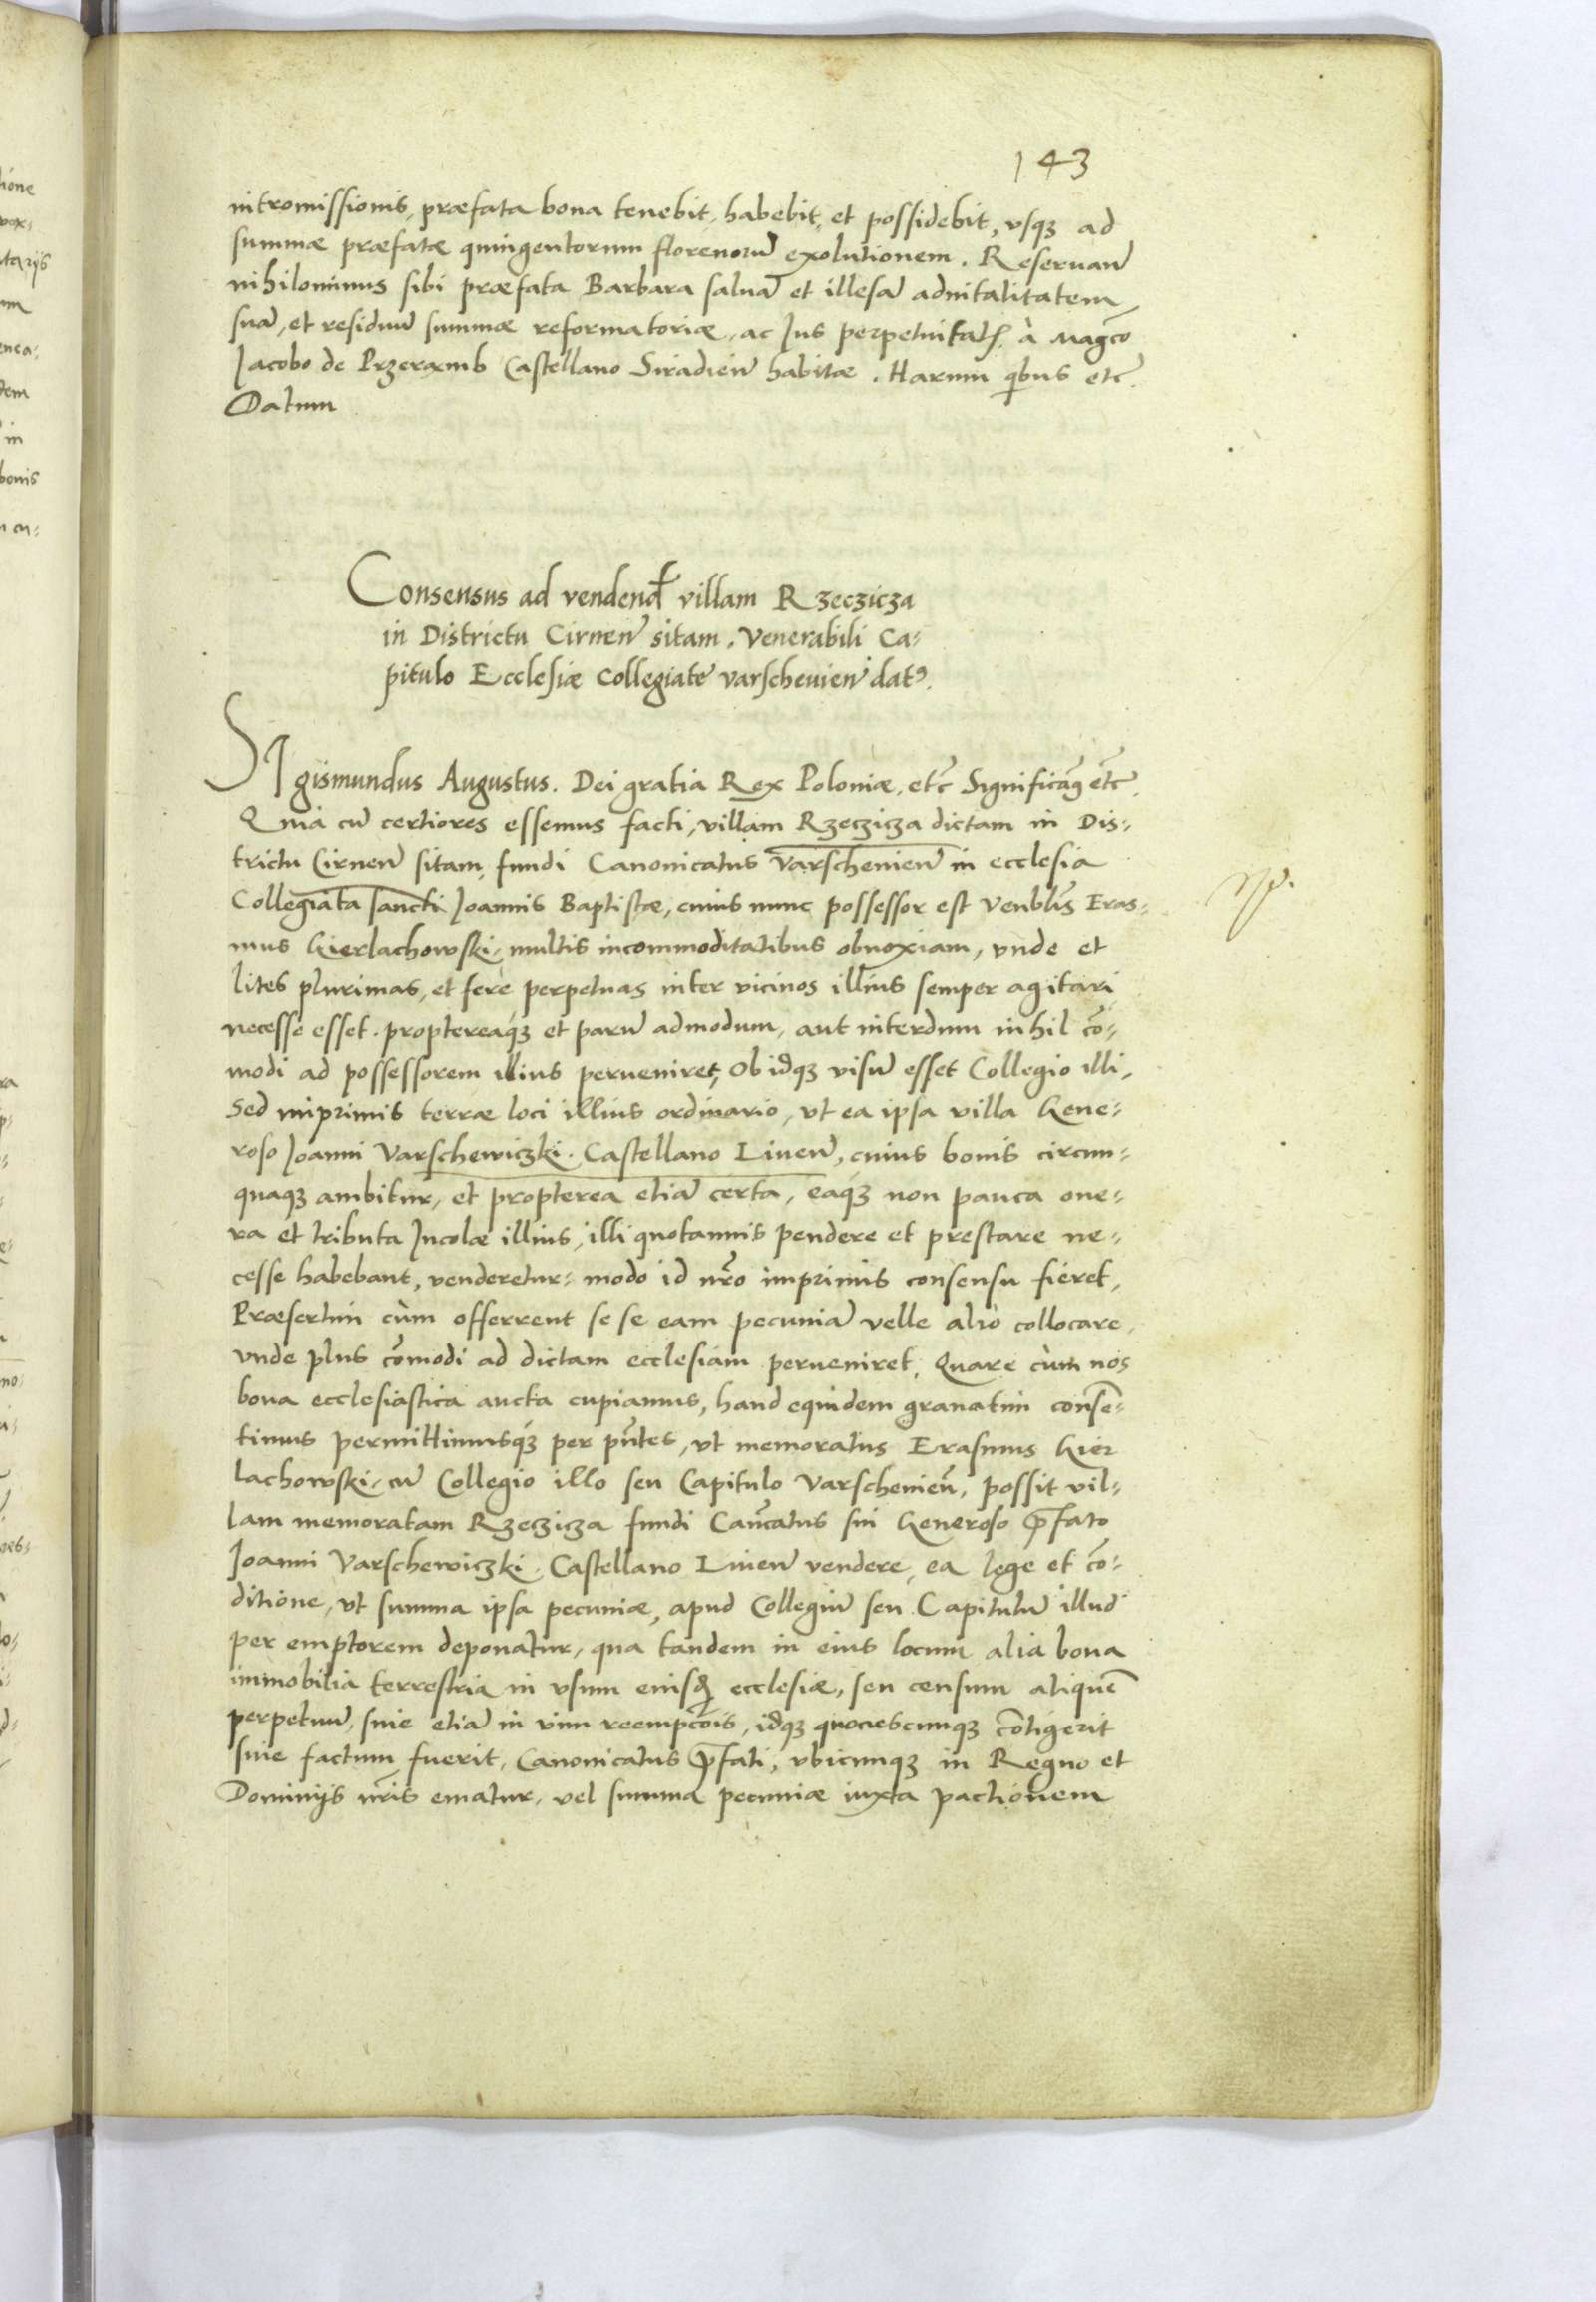 143
intromissionis, præfata bona tenebit, habebit, et possidebit, vsq₃ ad
summæ præfatæ quingentorum florenorū exolutionem. Reseruan̄
nihilominus sibi præfata Barbara saluā et illesā aduitalitatem
suā, et residuū summæ reformatoriæ, ac Ius perpetuitatꝭ à Magco̅
Jacobo de Przeramb Castellano Siradien̄ habitæ. Harum qibus etc̅.
Datum
Consensus ad vendend̄ villam Rzeczicza
in Districtu Cirnen̄ sitam. Venerabili Ca-
pitulo Ecclesiæ Collegiatę varscheuien̄ datꝰ.
SIgismundus Augustus. Dei gratia Rex Poloniæ, etc̅ Significam̄9 etc̅.
Quia cū certiores essemus facti, villam Rzeczicza dictam in Dis-
trictu Cirnen̄ sitam, fundi Canonicatus Varscheuien̄ in ecclesia
Collegiata sancti Joannis Baptistæ, cuius nunc possessor est Venblis̄ Eras-
mus Gierlachowski, multis incommoditatibus obnoxiam, vnde et
lites plurimas, et ferè perpetuas inter vicinos illius semper agitari
necesse esset. proptereaq́₃ et parū admodum, aut interdum nihil co̅-
modi ad possessorem illius perueniret, Ob idq₃ visū esset Collegio illi,
Sed inprimis terræ loci illius ordinario, vt ea ipsa villa Gene-
roso Joanni Varschewiczki. Castellano Liuen̄, cuius bonis circun-
quaq₃ ambitur, et propterea etiā certa, eaq́₃ non pauca one-
ra et tributa Incolæ illius, illi quotannis pendere et prestare ne-
cesse habebant, venderetur: modo id nr̄o imprimis consensu fieret,
Præsertim cùm offerrent se se eam pecuniā velle aliò collocare,
vnde plus co̅modi ad dictam ecclesiam perueniret, Quare cùm nos
bona ecclesiastica aucta cupiamus, haud equidem grauatim conse̅-
timus permittimusq́₃ per pn̄tes, vt memoratus Erasmus Gier
lachowski, cū Collegio illo seu Capitulo Varscheuien̄, possit vil-
lam memoratam Rzeczicza fundi Can̄catus sui Generoso p̄fato
Joanni Varschewiczki. Castellano Liuen̄ vendere, ea lege et co̅-
ditione, vt summa ipsa pecuniæ, apud Collegiū seu Capitulū illud
per emptorem deponatur, qua tandem in eius locum alia bona
immobilia terrestria in vsum eiusꝗ ecclesiæ, seu censum alique̅
perpetuū, siue etiā in vim reemptio̅is, idq₃ quotiescunq₃ co̅tigerit
siue factum fuerit, Canonicatus p̄fati, vbicunq₃ in Regno et
Dominijs nr̄is ematur, vel summa pecuniæ iuxta pactionem